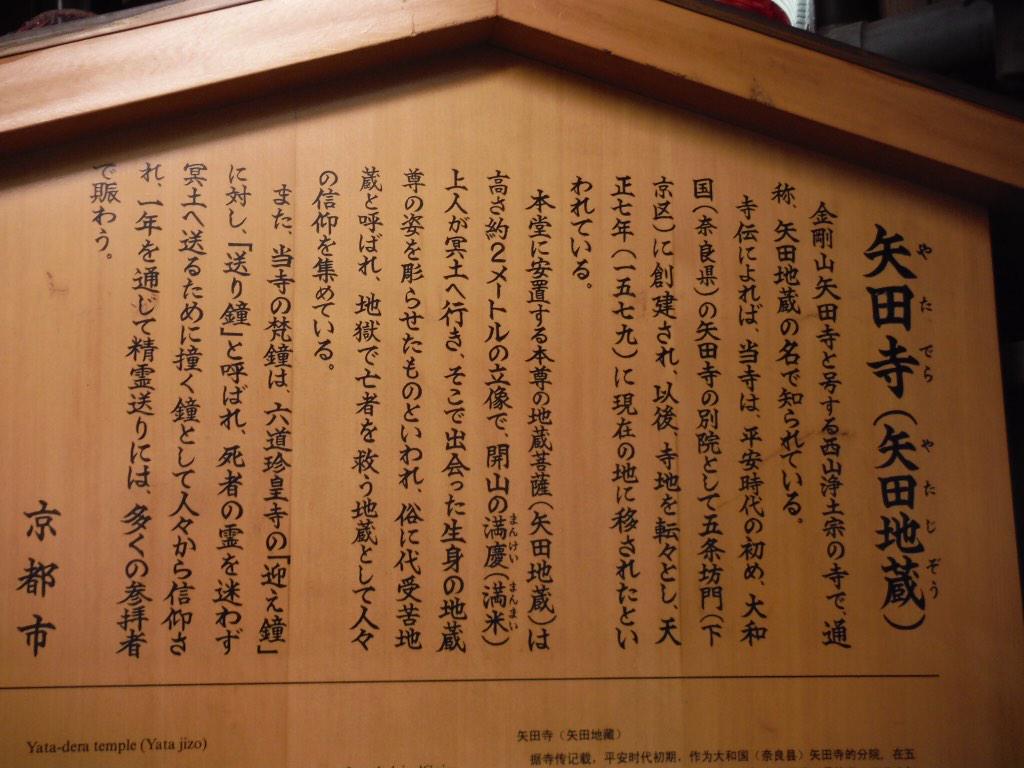 矢田寺（矢田地蔵）
やたでら やたじぞう
金剛山矢田寺と号する西山浄土宗の寺で、通
称、矢田地蔵の名で知られている。
寺伝によれば、当寺は、平安時代の初め、大和
国（奈良県）の矢田寺の別院として五条坊門（下
京区）に創建され、以後、寺地を転々とし、天
正七年（一五七九）に現在の地に移されたとい
われている。
本堂に安置する本尊の地蔵菩薩（矢田地蔵）は
高さ約2メートルの立像で、開山の満慶（満米）
まんけい まんまい
上人が冥土へ行き、そこで出会った生身の地蔵
尊の姿を彫らせたものといわれ、俗に代受苦地
蔵と呼ばれ、地獄で亡者を救う地蔵として人々
の信仰を集めている。
また、当寺の梵鐘は、六道珍皇寺の「迎え鐘」
に対し、「送り鐘」と呼ばれ、死者の霊を迷わず
冥土へ送るために撞く鐘として人々から信仰さ
れ、一年を通じて精霊送りには、多くの参拝者
で賑わう。
京都市
Yata-dera temple (Yata jizo)
矢田寺（矢田地藏）
据寺传记载，平安时代初期，作为大和国（奈良县）矢田寺的分院，在五